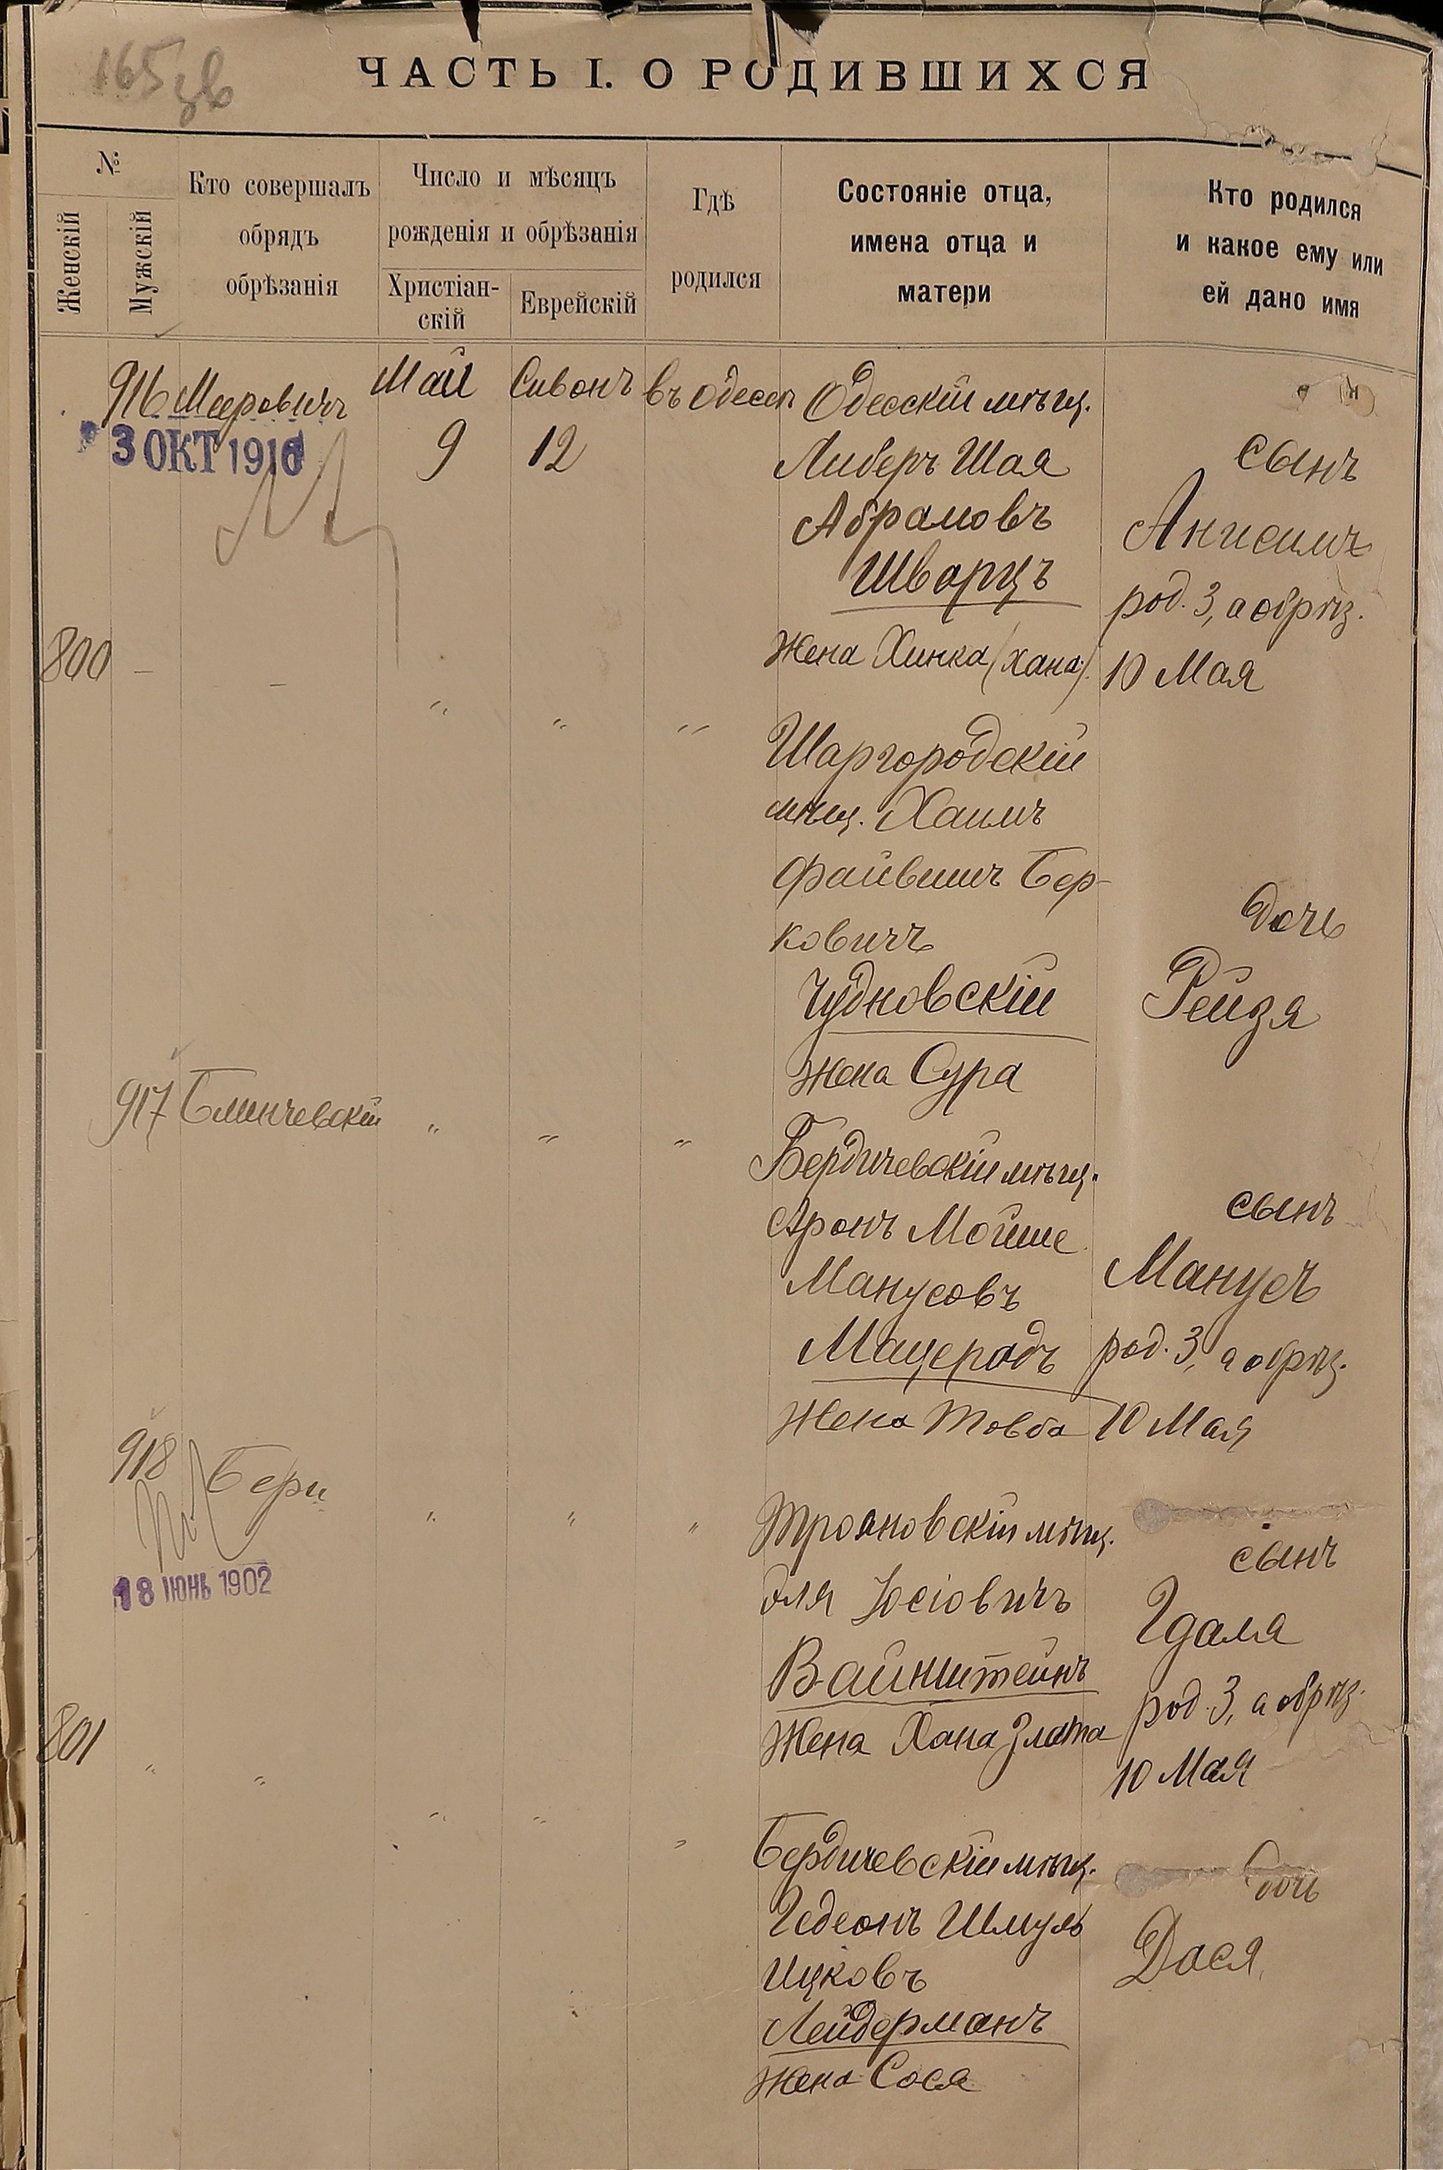 165 зв
ЧАСТЬ I. О РОДИВШИХСЯ
№
Женскій
Мужскій
Кто совершалъ
обрядъ
обрѣзанія
Число и мѣсяцъ
рожденія и обрѣзанія
Христіан-
скій
Еврейскій
Гдѣ
родился
Состояніе отца,
имена отца и
матери
Кто родился
и какое ему или
ей дано имя
916 Мееровичъ Май Сивонъ въ Одессѣ Одесскій мѣщ.
3 ОКТ 1916
9 12
Либеръ Шая
Абрамовъ
Шварцъ
Жена Хинка (Хана)
сынъ
Анисимъ
род. 3, а обрѣз.
10 Мая
800 — — " " "
Шаргородскій
мѣщ. Хаимъ
Файвишъ Бер-
ковичъ
Чудновскій
Жена Сура
дочь
Рейзя
917 Блинчевскій " " "
Бердичевскій мѣщ.
Аронъ Мойше
Манусовъ
Мацеродъ
Жена Товба
сынъ
Манусъ
род. 3, а обрѣз.
10 Мая
918 Бери " " "
18 ІЮНЬ 1902
Трояновскій мѣщ.
Эля Іосіовичъ
Вайнштейнъ
Жена Хана Злата
сынъ
Гдаля
род. 3, а обрѣз.
10 Мая
801 " " " " "
Бердичевскій мѣщ.
Гедеонъ Шмуль
Ицковъ
Лейдерманъ
Жена Сося
дочь
Дася